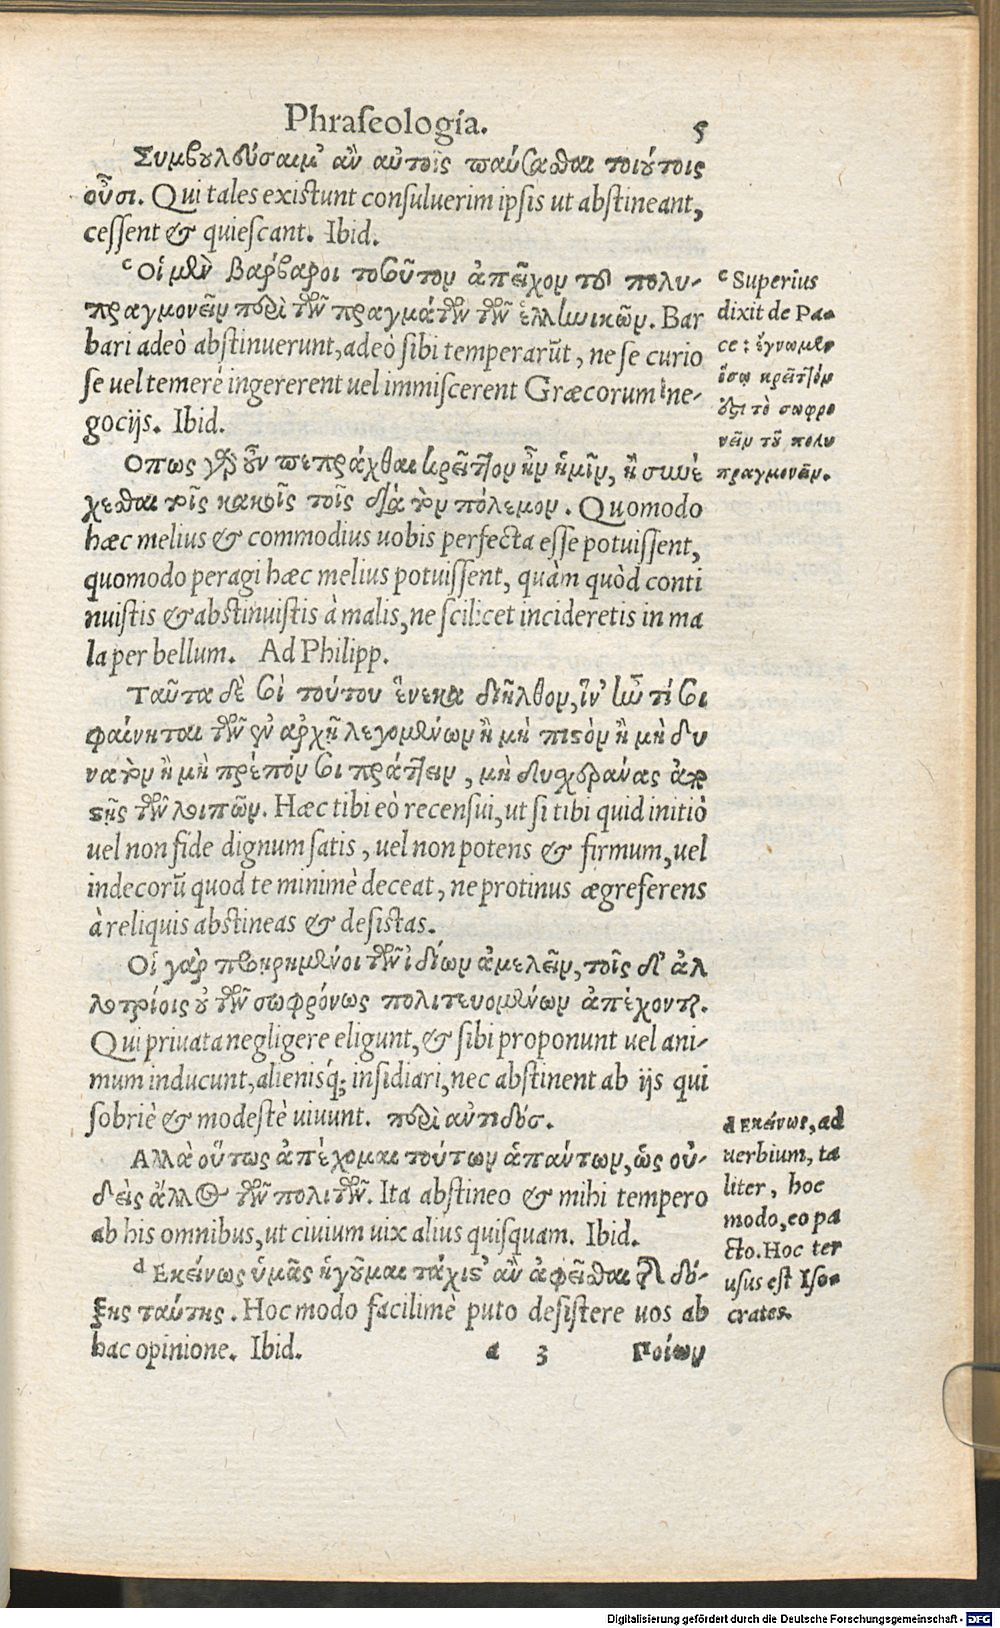 Phraseologia.
5
Συμβουλεύσαιμ' ἂν αὐτοῖς παύσασθαι τοιούτοις
οὖσι. Qui tales existunt consuluerim ipsis ut abstineant,
cessent & quiescant. Ibid.
c Οἱ μὲν Βάρβαροι τοσοῦτον ἀπεῖχον τοῦ πολυ-
πραγμονεῖν περὶ τῶν πραγμάτων τῶν ἑλληνικῶν. Bar
bari adeò abstinuerunt, adeò sibi temperarūt, ne se curio
se uel temerè ingererent uel immiscerent Græcorum ne-
gocijs. Ibid.
Οπως γὰρ οὖν πεπράχθαι κρεῖττον ἦν ἡμῖν, ἢ συνέ
χεσθαι τοῖς κακοῖς τοῖς διὰ τὸν πόλεμον. Quomodo
hæc melius & commodius uobis perfecta esse potuissent,
quomodo peragi hæc melius potuissent, quàm quòd conti
nuistis & abstinuistis à malis, ne scilicet incideretis in ma
la per bellum. Ad Philipp.
Ταῦτα δὲ σοὶ τούτου ἕνεκα διῆλθον, ἵν' ἤν τί σοι
φαίνηται τῶν ἐν ἀρχῇ λεγομένων ἢ μὴ πιστὸν ἢ μὴ δυ
νατὸν ἢ μὴ πρέπόν σοι πράττειν, μὴ δυσχεράνας ἀπο
στῇς τῶν λοιπῶν. Hæc tibi eò recensui, ut si tibi quid initiò
uel non fide dignum satis, uel non potens & firmum, uel
indecorū quod te minimè deceat, ne protinus ægreferens
à reliquis abstineas & desistas.
Οἱ γὰρ προῃρημένοι τῶν ἰδίων ἀμελεῖν, τοῖς δ' ἀλ
λοτρίοις οὐ τῶν σωφρόνως πολιτευομένων ἀπέχονται.
Qui priuata negligere eligunt, & sibi proponunt uel ani-
mum inducunt, alienisq́; insidiari, nec abstinent ab ijs qui
sobriè & modestè uiuunt. περὶ αὐτιδόσ.
Αλλὰ οὕτως ἀπέχομαι τούτων ἁπάντων, ὡς οὐ-
δεὶς ἄλλος τῶν πολιτῶν. Ita abstineo & mihi tempero
ab his omnibus, ut ciuium uix alius quisquam. Ibid.
d Εκείνως ὑμᾶς ἡγοῦμαι τάχιστ' ἂν ἀφεῖσθαι τῆς δό-
ξης ταύτης. Hoc modo facilimè puto desistere uos ab
hac opinione. Ibid.
a 3
Ποίων
c Superius
dixit de Pa-
ce: ἔγνωμεν
ὅσῳ κρεῖττόν
ἐστι τὸ σωφρο
νεῖν τοῦ πολυ
πραγμονεῖν.
d Εκείνως, ad
uerbium, ta
liter, hoc
modo, eo pa
cto. Hoc ter
usus est Iso-
crates.
Digitalisierung gefördert durch die Deutsche Forschungsgemeinschaft - DFG